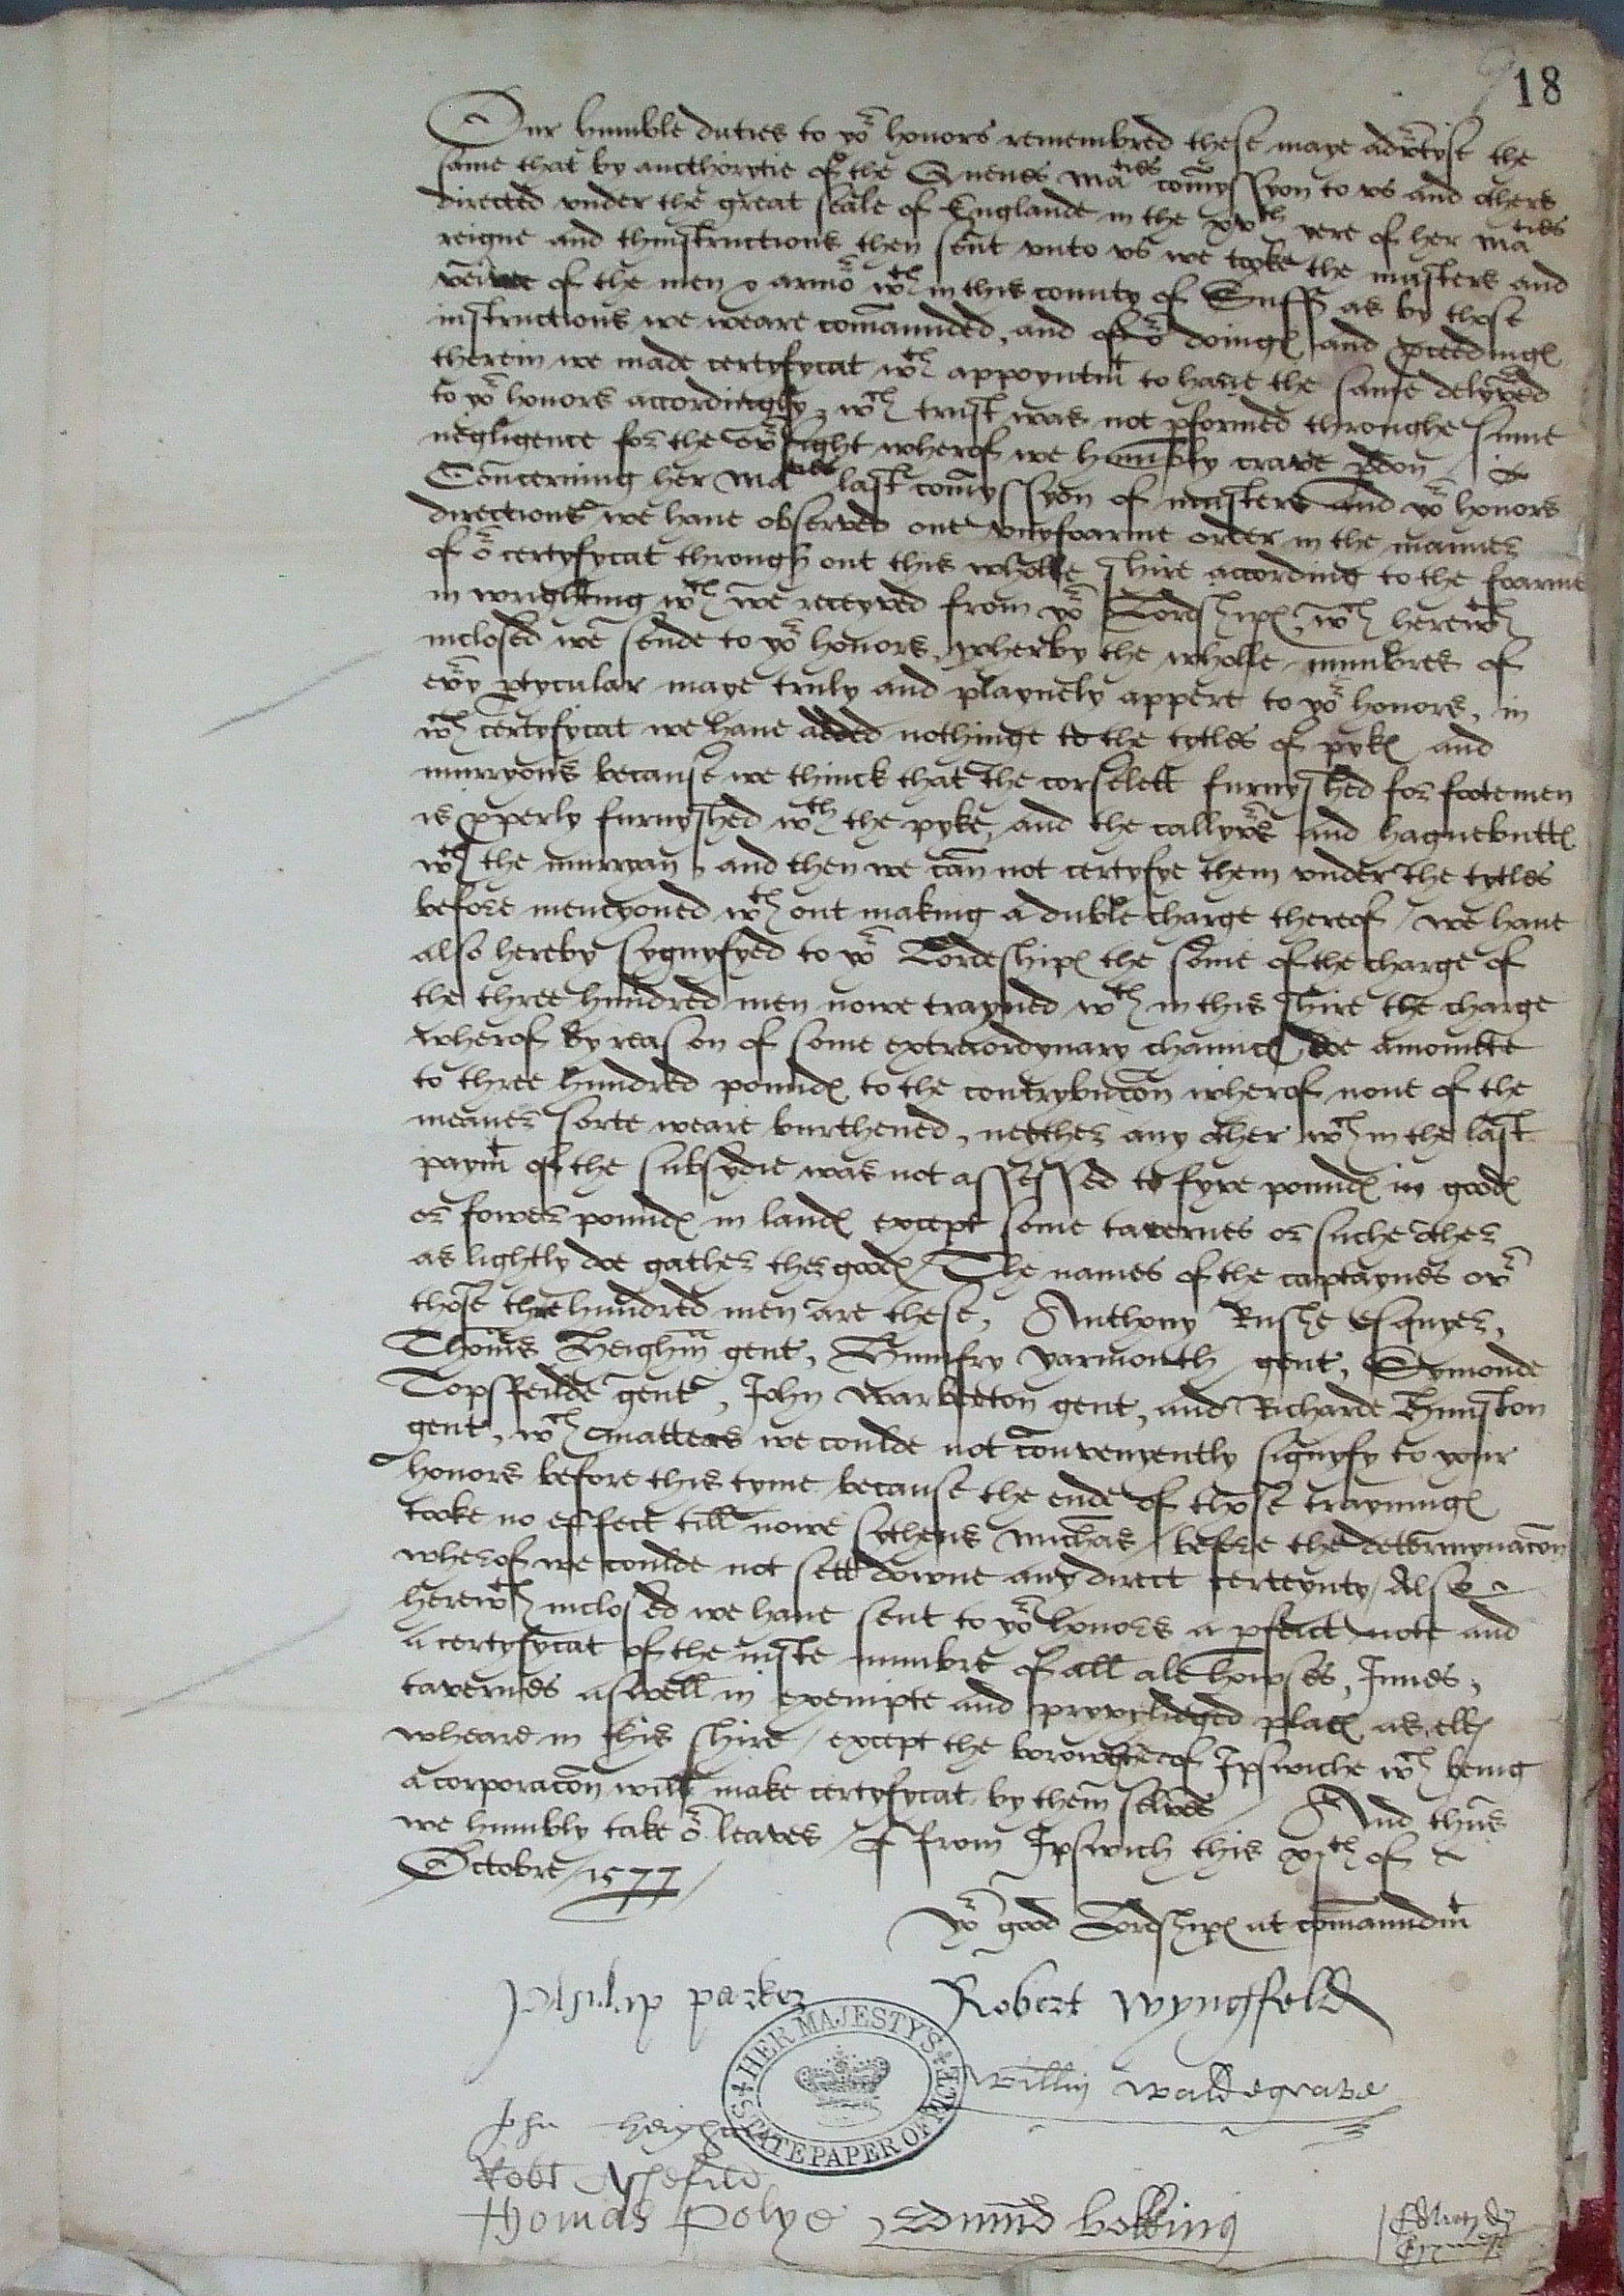 18
Our humble duties to yor honors remembred these maye advertyse the
same that by aucthorytie of the Quenes maties comyssyon to us and others
directed under the great seale of Englande in the xvth yere of her maties
reigne and thinstructions then sent unto us we tooke the musters and
of the men & armor wthin this county of Suff as by those
instructions we weare comaunded, and of or doinges and proceedinges
therein we made certyfycat wth appoyntmt to have the same delyvred
to yor honors accordingly, wch trust was not pformed throughe sume
negligence for the ovrsight wherof we humbly crave pdon /
Concerning her maties last comyssyon of musters and yor honors
directions we have observed one unyfoarme order in the manner
of or certyfycat through out this wholle shire according to the foarme
in wrighting wch we receyved from yor Lordshipes, wch herewth
inclosed we sende to yor honors, wherby the wholle numbres of
evry ptycular maye truly and playnely appere to yor honors, in
wch certyfycat we have added nothinge to the tytles of pykes and
murryons because we thinck that the corselett furnyshed for footemen
is pperly furnyshed wth the pyke, and the callyvrs and haguebuttes
wth the murryan, and then we can not certyfye them under the tytles
before mencyoned wth out making a duble charge thereof / we have
also hereby sygnyfyed to yor Lordeshipes the some of the charge of
the three hundred men nowe trayned wth in this shire the charge
wherof by reason of some extraordynary chaunces doe amounte
to three hundred poundes to the contrybucon wherof none of the
meaner sorte weare burthened, neyther any other wch in the last
paymt of the subsydie was not assessed to fyve poundes in goodes
or fower poundes in landes except some taverns or suche other
as lightly doe gather ther goodes / The names of the captaynes ovr
those thre hundred men are these, Anthony Rushe esquyer,
Thoms Heighm gent, Humfry yarmouth gent, Symonde
Topsfeilde gent, John warberton gent, and Richarde Hunston
gent, wch matters we coulde not convenyently signyfy to your
honors before this tyme because the ende of those trayninges
tooke no effect till nowe sythens michas / before the determynacon
wherof we coulde not sett downe any direct certeynty / Also
herewth inclosed we have sent to yor honors a pfect note and
a certyfycat of the iuste numbre of all ale howses, Innes,
tavernes aswell in exempte and pryvyledged places as elles
wheare in this shire / except the borowghe of Ipswiche wch being
a corporacon will make certyfycat by them selves / And thus
we humbly take or leaves / ffrom Ipswich this xith of
Octobre / 1577 /
Yor good Lordshipes at comaundmt
Philip parker Robert wyngfeld
willm waldegrave
Jhn heigham
Robt Asshefild
Thomas Polye Edmnd bokking
HER MAJESTY'S STATE PAPER OFFICE